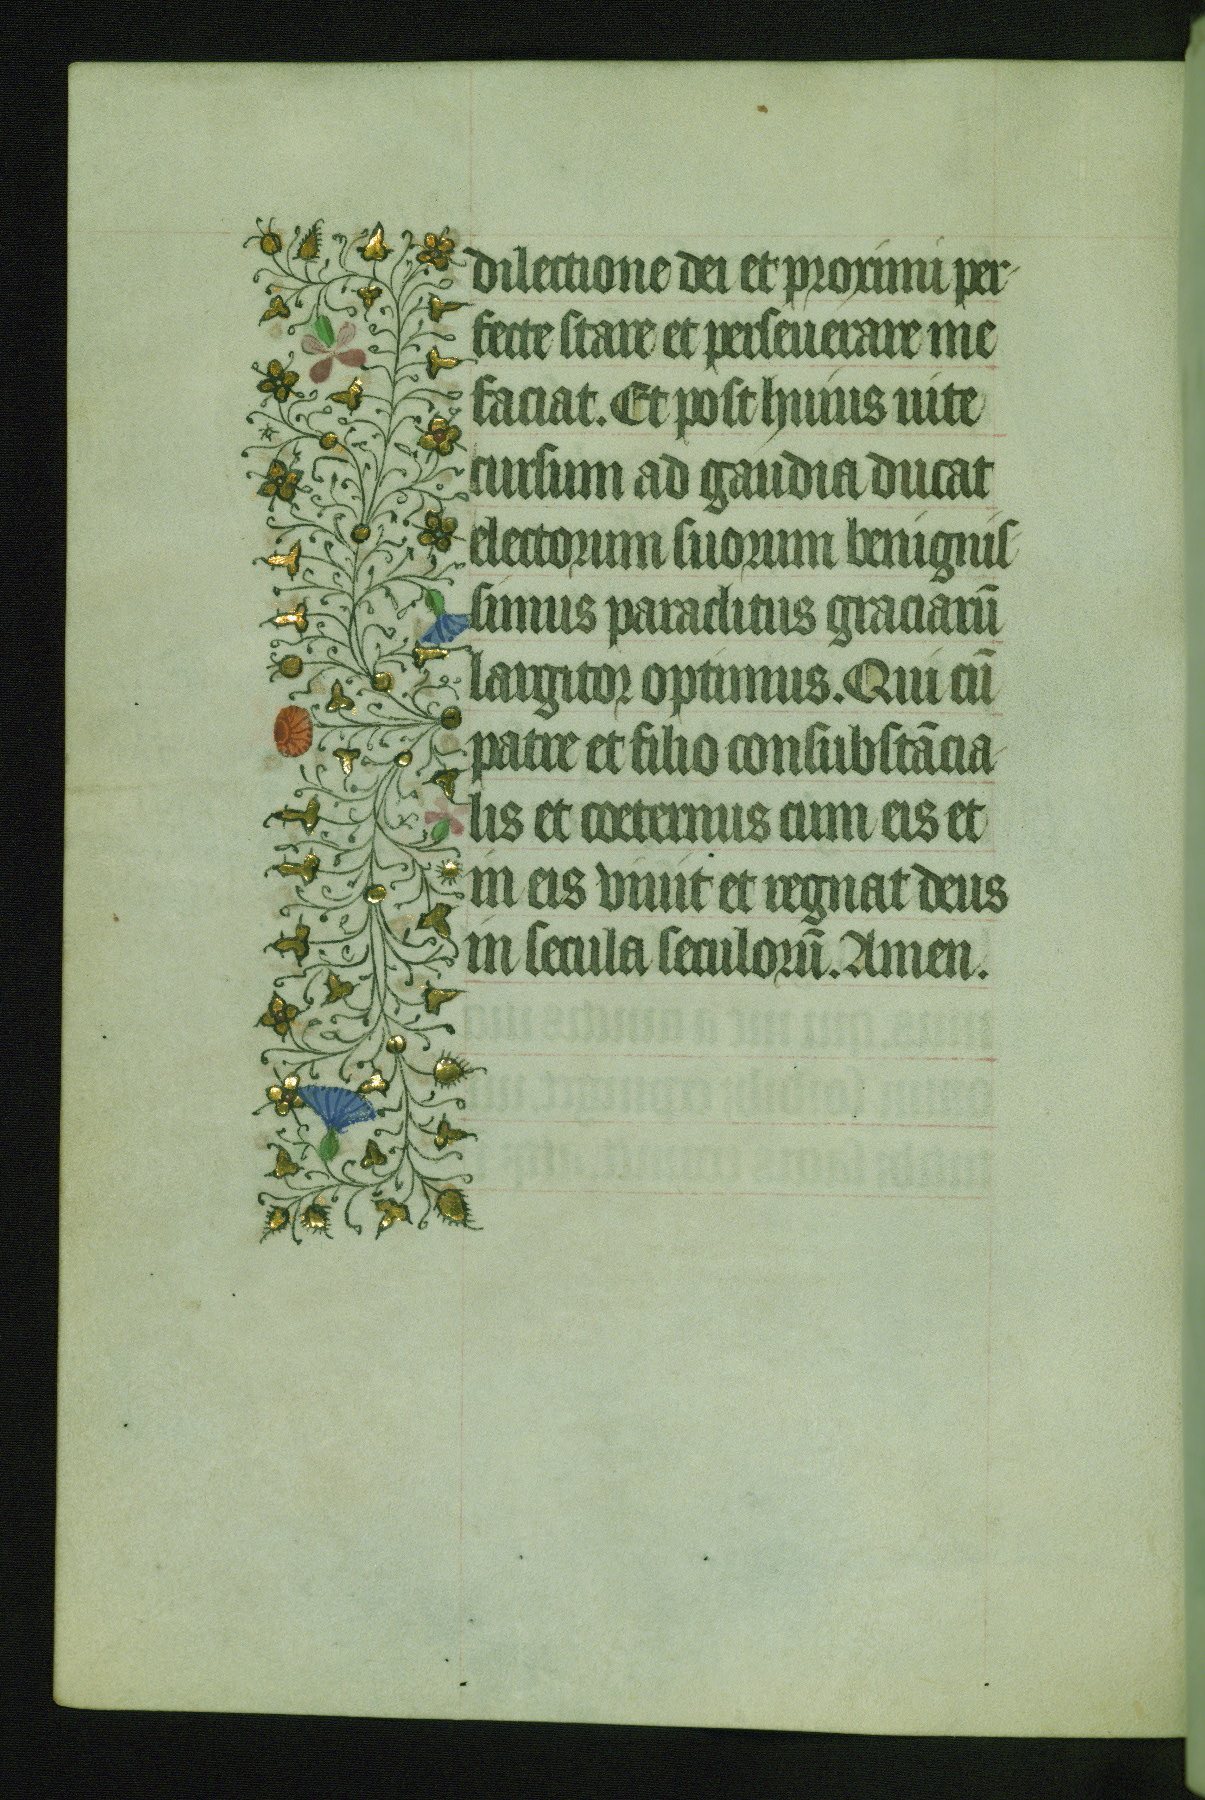 dilectione dei et proximi per-
fecte stare et perseuerare me
faciat. Et post huius uite
cursum ad gaudia ducat
electorum suorum benignis-
simus paraclitus graciarū
largitor optimus. Qui cū
patre et filio consubstācia-
lis et coeternus cum eis et
in eis viuit et regnat deus
in secula seculorū. Amen.